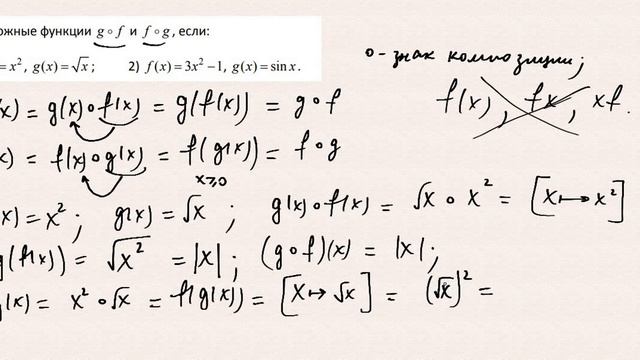 ожные функции g∘f и f∘g, если:
= x², g(x) = √x; 2) f(x) = 3x² − 1, g(x) = sin x.
∘ - знак композиции;
f(x), fx, xf.
x) = g(x)∘f(x) = g(f(x)) = g∘f
x) = f(x)∘g(x) = f(g(x)) = f∘g
x⩾0
x) = x²; g(x) = √x; g(x)∘f(x) = √x ∘ x² = [x ↦ x²]
g(f(x)) = √x² = |x|; (g∘f)(x) = |x|;
g(x) = x²∘√x = f(g(x)) = [x ↦ √x] = (√x)² =